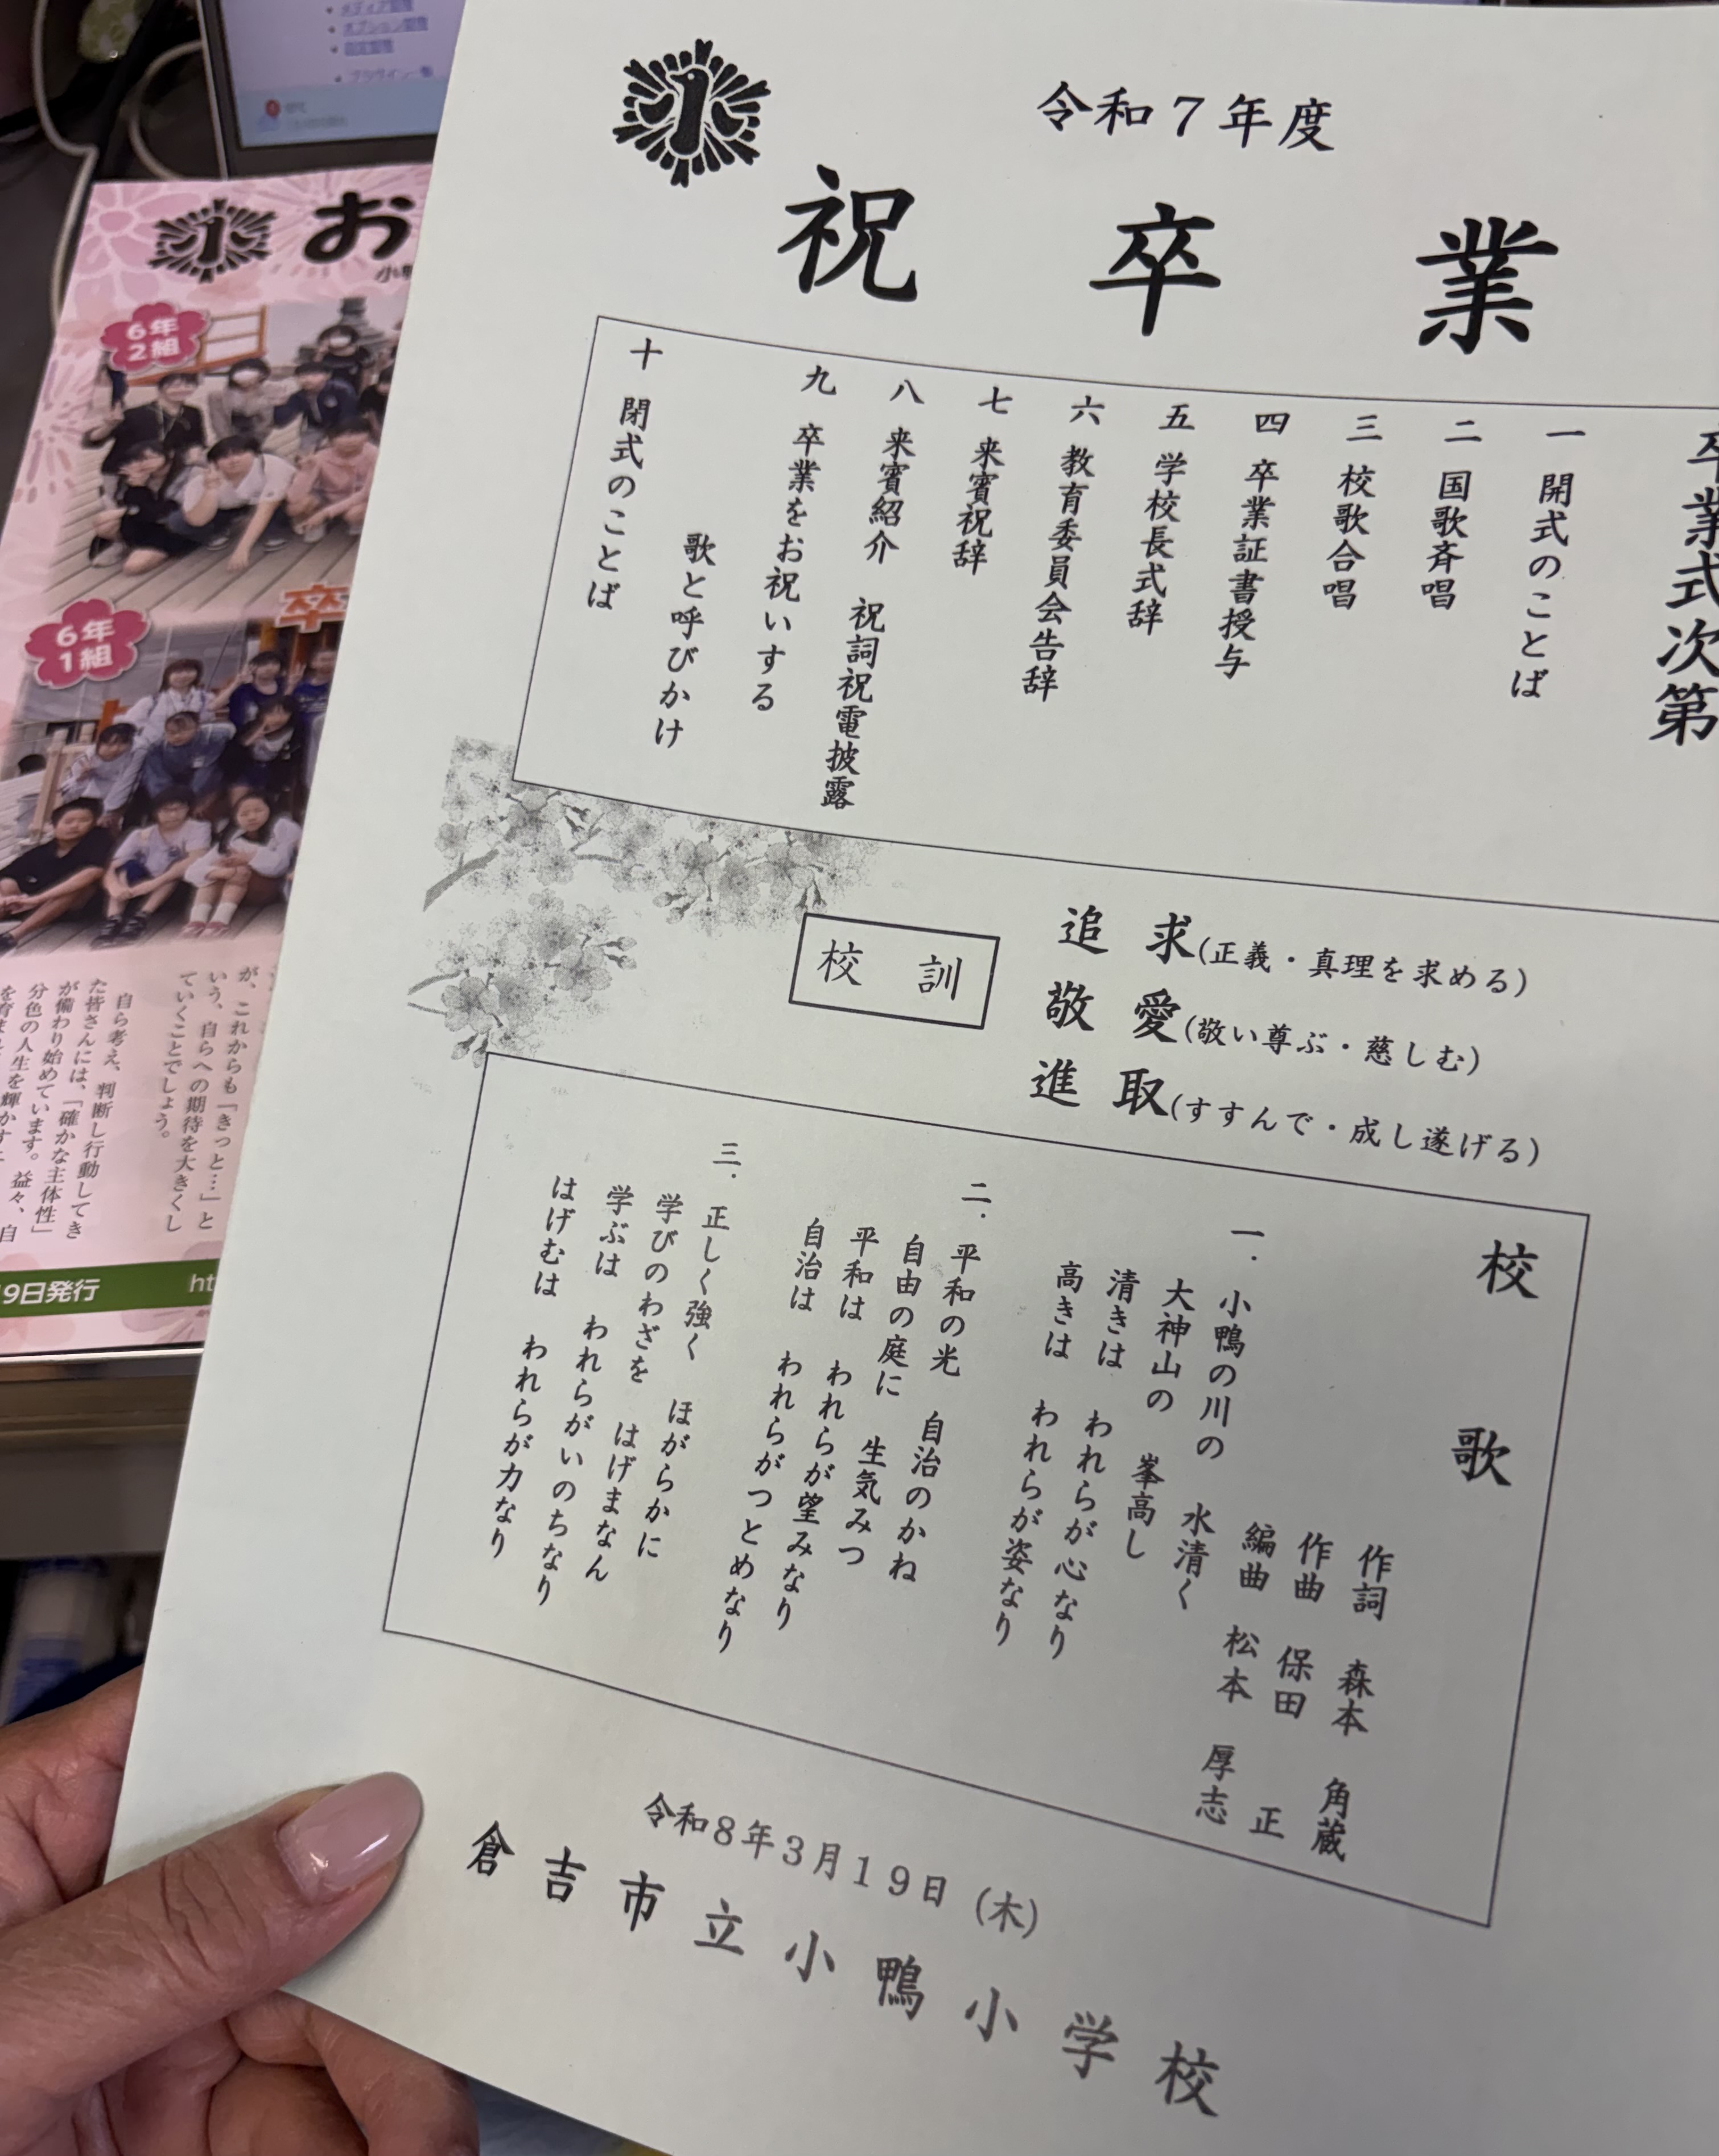 令和7年度
祝卒業
卒業式次第
一 開式のことば
二 国歌斉唱
三 校歌合唱
四 卒業証書授与
五 学校長式辞
六 教育委員会告辞
七 来賓祝辞
八 来賓紹介 祝詞祝電披露
九 卒業をお祝いする
歌と呼びかけ
十 閉式のことば
校訓
追求(正義・真理を求める)
敬愛(敬い尊ぶ・慈しむ)
進取(すすんで・成し遂げる)
校歌
作詞 森本 角蔵
作曲 保田 正
編曲 松本 厚志
一. 小鴨の川の 水清く
大神山の 峯高し
清きは われらが心なり
高きは われらが姿なり
二. 平和の光 自治のかね
自由の庭に 生気みつ
平和は われらが望みなり
自治は われらがつとめなり
三. 正しく強く ほがらかに
学びのわざを はげまなん
学ぶは われらがいのちなり
はげむは われらが力なり
令和8年3月19日(木)
倉吉市立小鴨小学校
お
6年
2組
卒
6年
1組
が、これからも「きっと…」と
いう、自らへの期待を大きくし
ていくことでしょう。
自ら考え、判断し行動してき
た皆さんには、「確かな主体性」
が備わり始めています。益々、自
分色の人生を輝かす
9日発行
ht